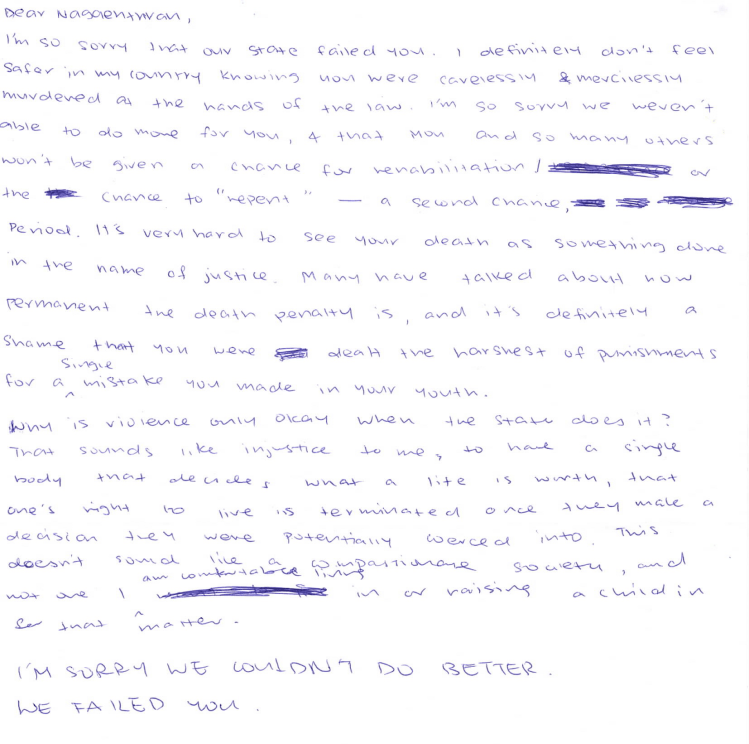 Dear Nagaenthran,
I'm so sorry that our state failed you. I definitely don't feel
safer in my country knowing you were carelessly & mercilessly
murdered at the hands of the law. I'm so sorry we weren't
able to do more for you, & that you and so many others
won't be given a chance for rehabilitation / or
the chance to "repent" — a second chance,
period. It's very hard to see your death as something done
in the name of justice. Many have talked about how
permanent the death penalty is, and it's definitely a
shame that you were dealt the harshest of punishments
for a single mistake you made in your youth.
Why is violence only okay when the state does it?
That sounds like injustice to me, to have a single
body that decides what a life is worth, that
one's right to live is terminated once they make a
decision they were potentially coerced into. This
doesn't sound like a compassionate society, and
not one I am comfortable living in or raising a child in
for that matter.
I'M SORRY WE COULDN'T DO BETTER.
WE FAILED YOU.